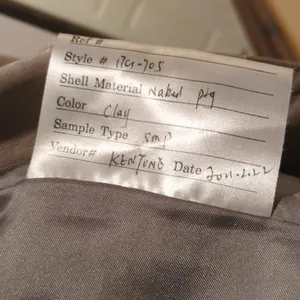 Ref #
Style # 17G-705
Shell Material Naked pig
Color Clay
Sample Type smp
Vendor# KENTONG Date 2011.2.22